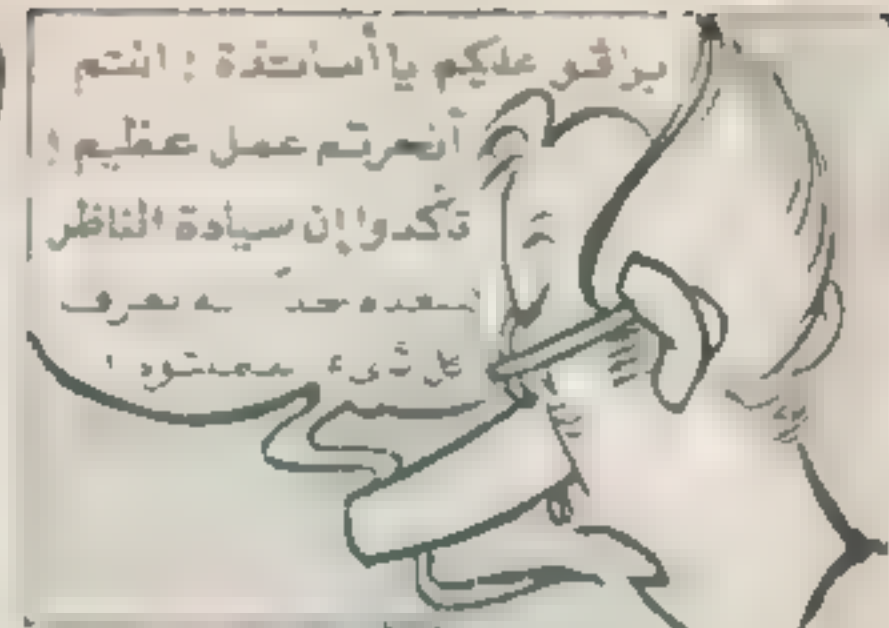 برافو عليكم يا أساتذة ! انتم
أنجزتم عمل عظيم !
تأكدوا إن سيادة الناظر
يعرف
كل شيء !